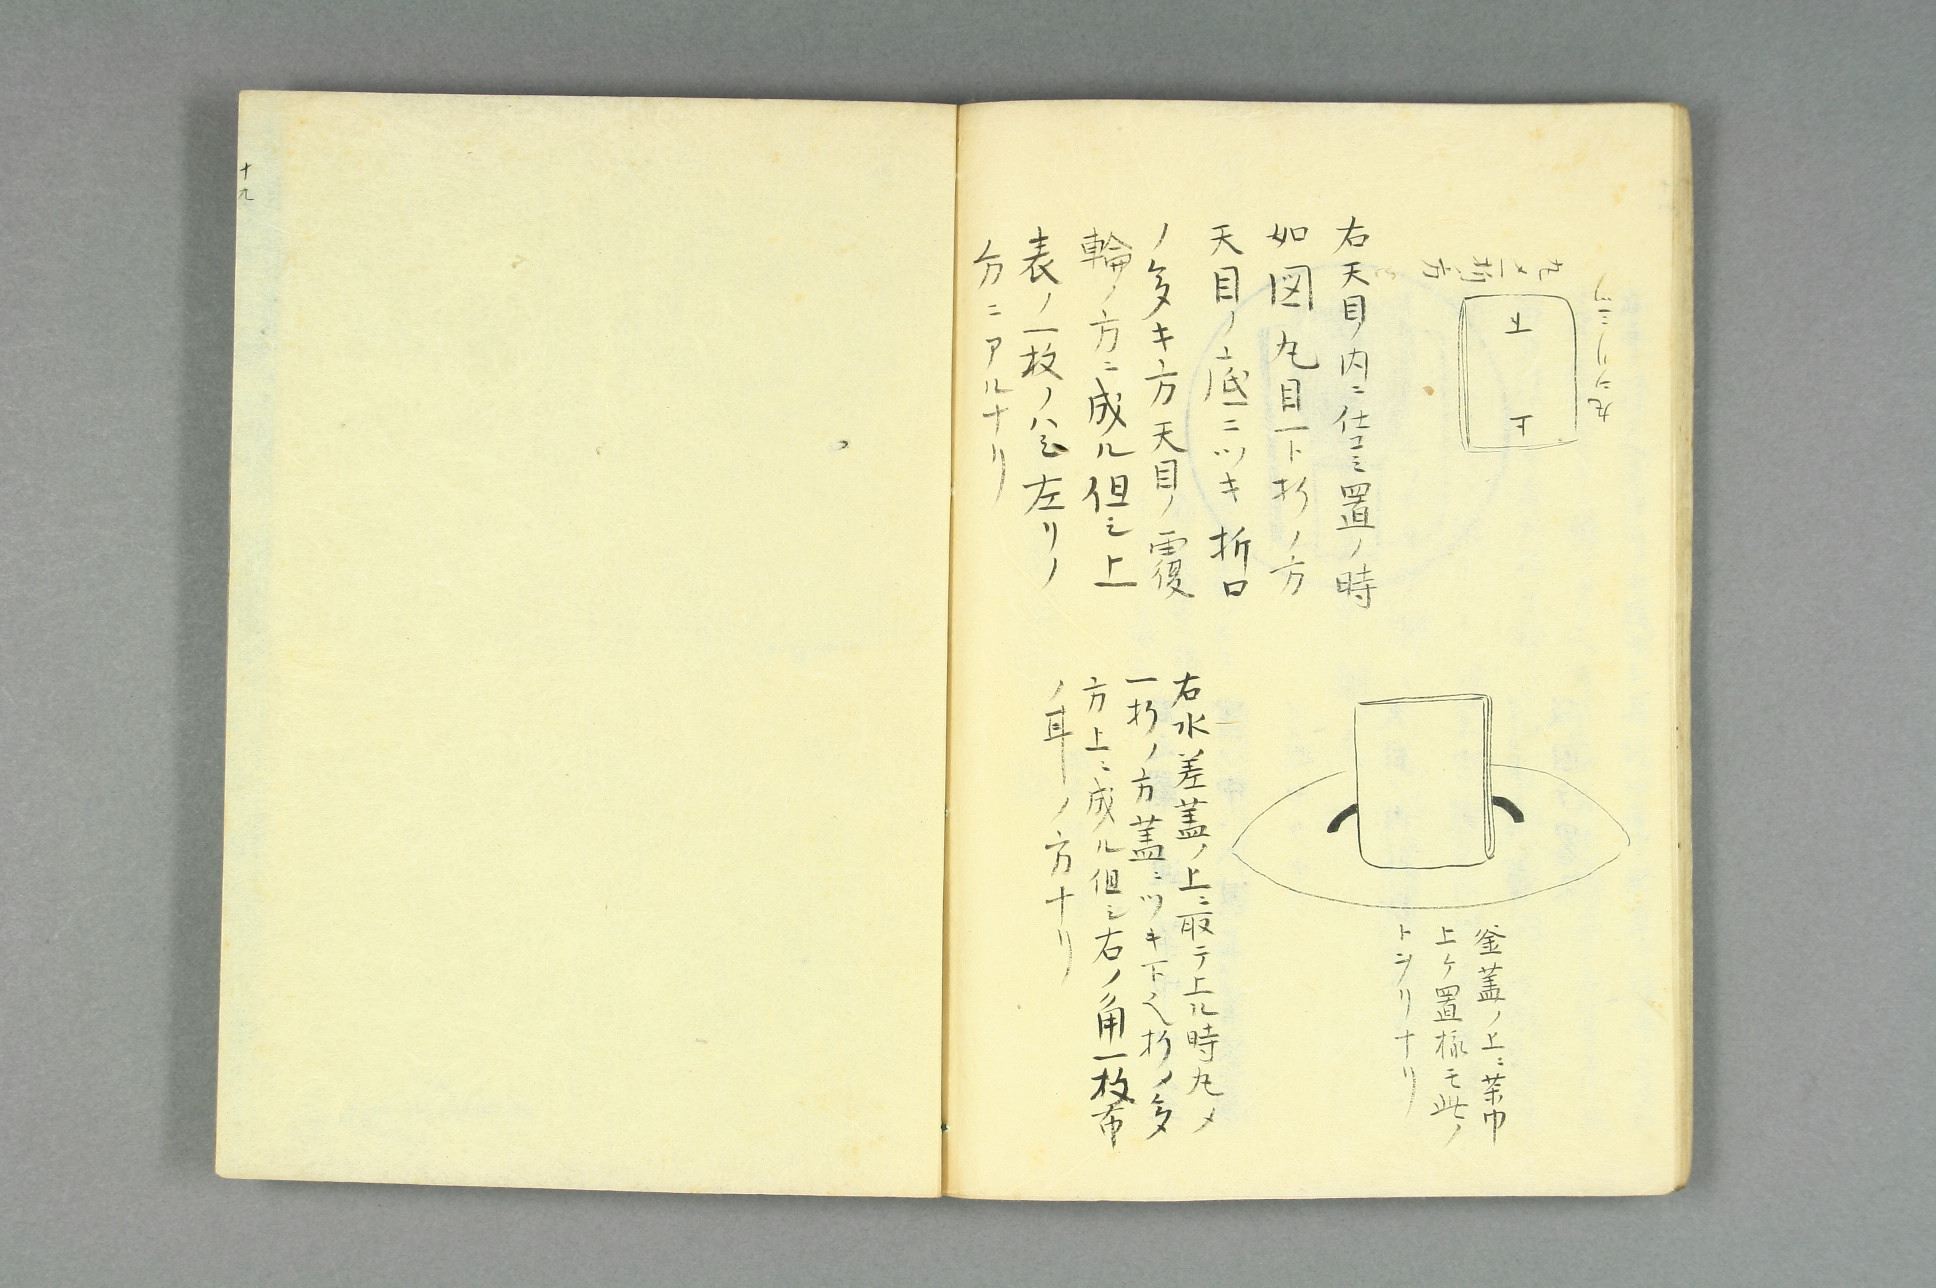 下
上
右天目ノ内ニ仕コミ置ノ時
如図丸目一ト折ノ方
天目ノ底ニツキ折口
ノ多キ方天目ノ覆
輪ノ方ニ成ル但シ上
表ノ一枚ノハシ左リノ
方ニアルナリ
釜蓋ノ上ニ茶巾
上ケ置様モ此ノ
トヲリナリ
右水差蓋ノ上ニ取テ上ル時丸メ
一折ノ方蓋ニツキ下ヘ折メ多
方上ニ成ル但シ右ノ角一枚布
ノ耳ノ方ナリ
十九